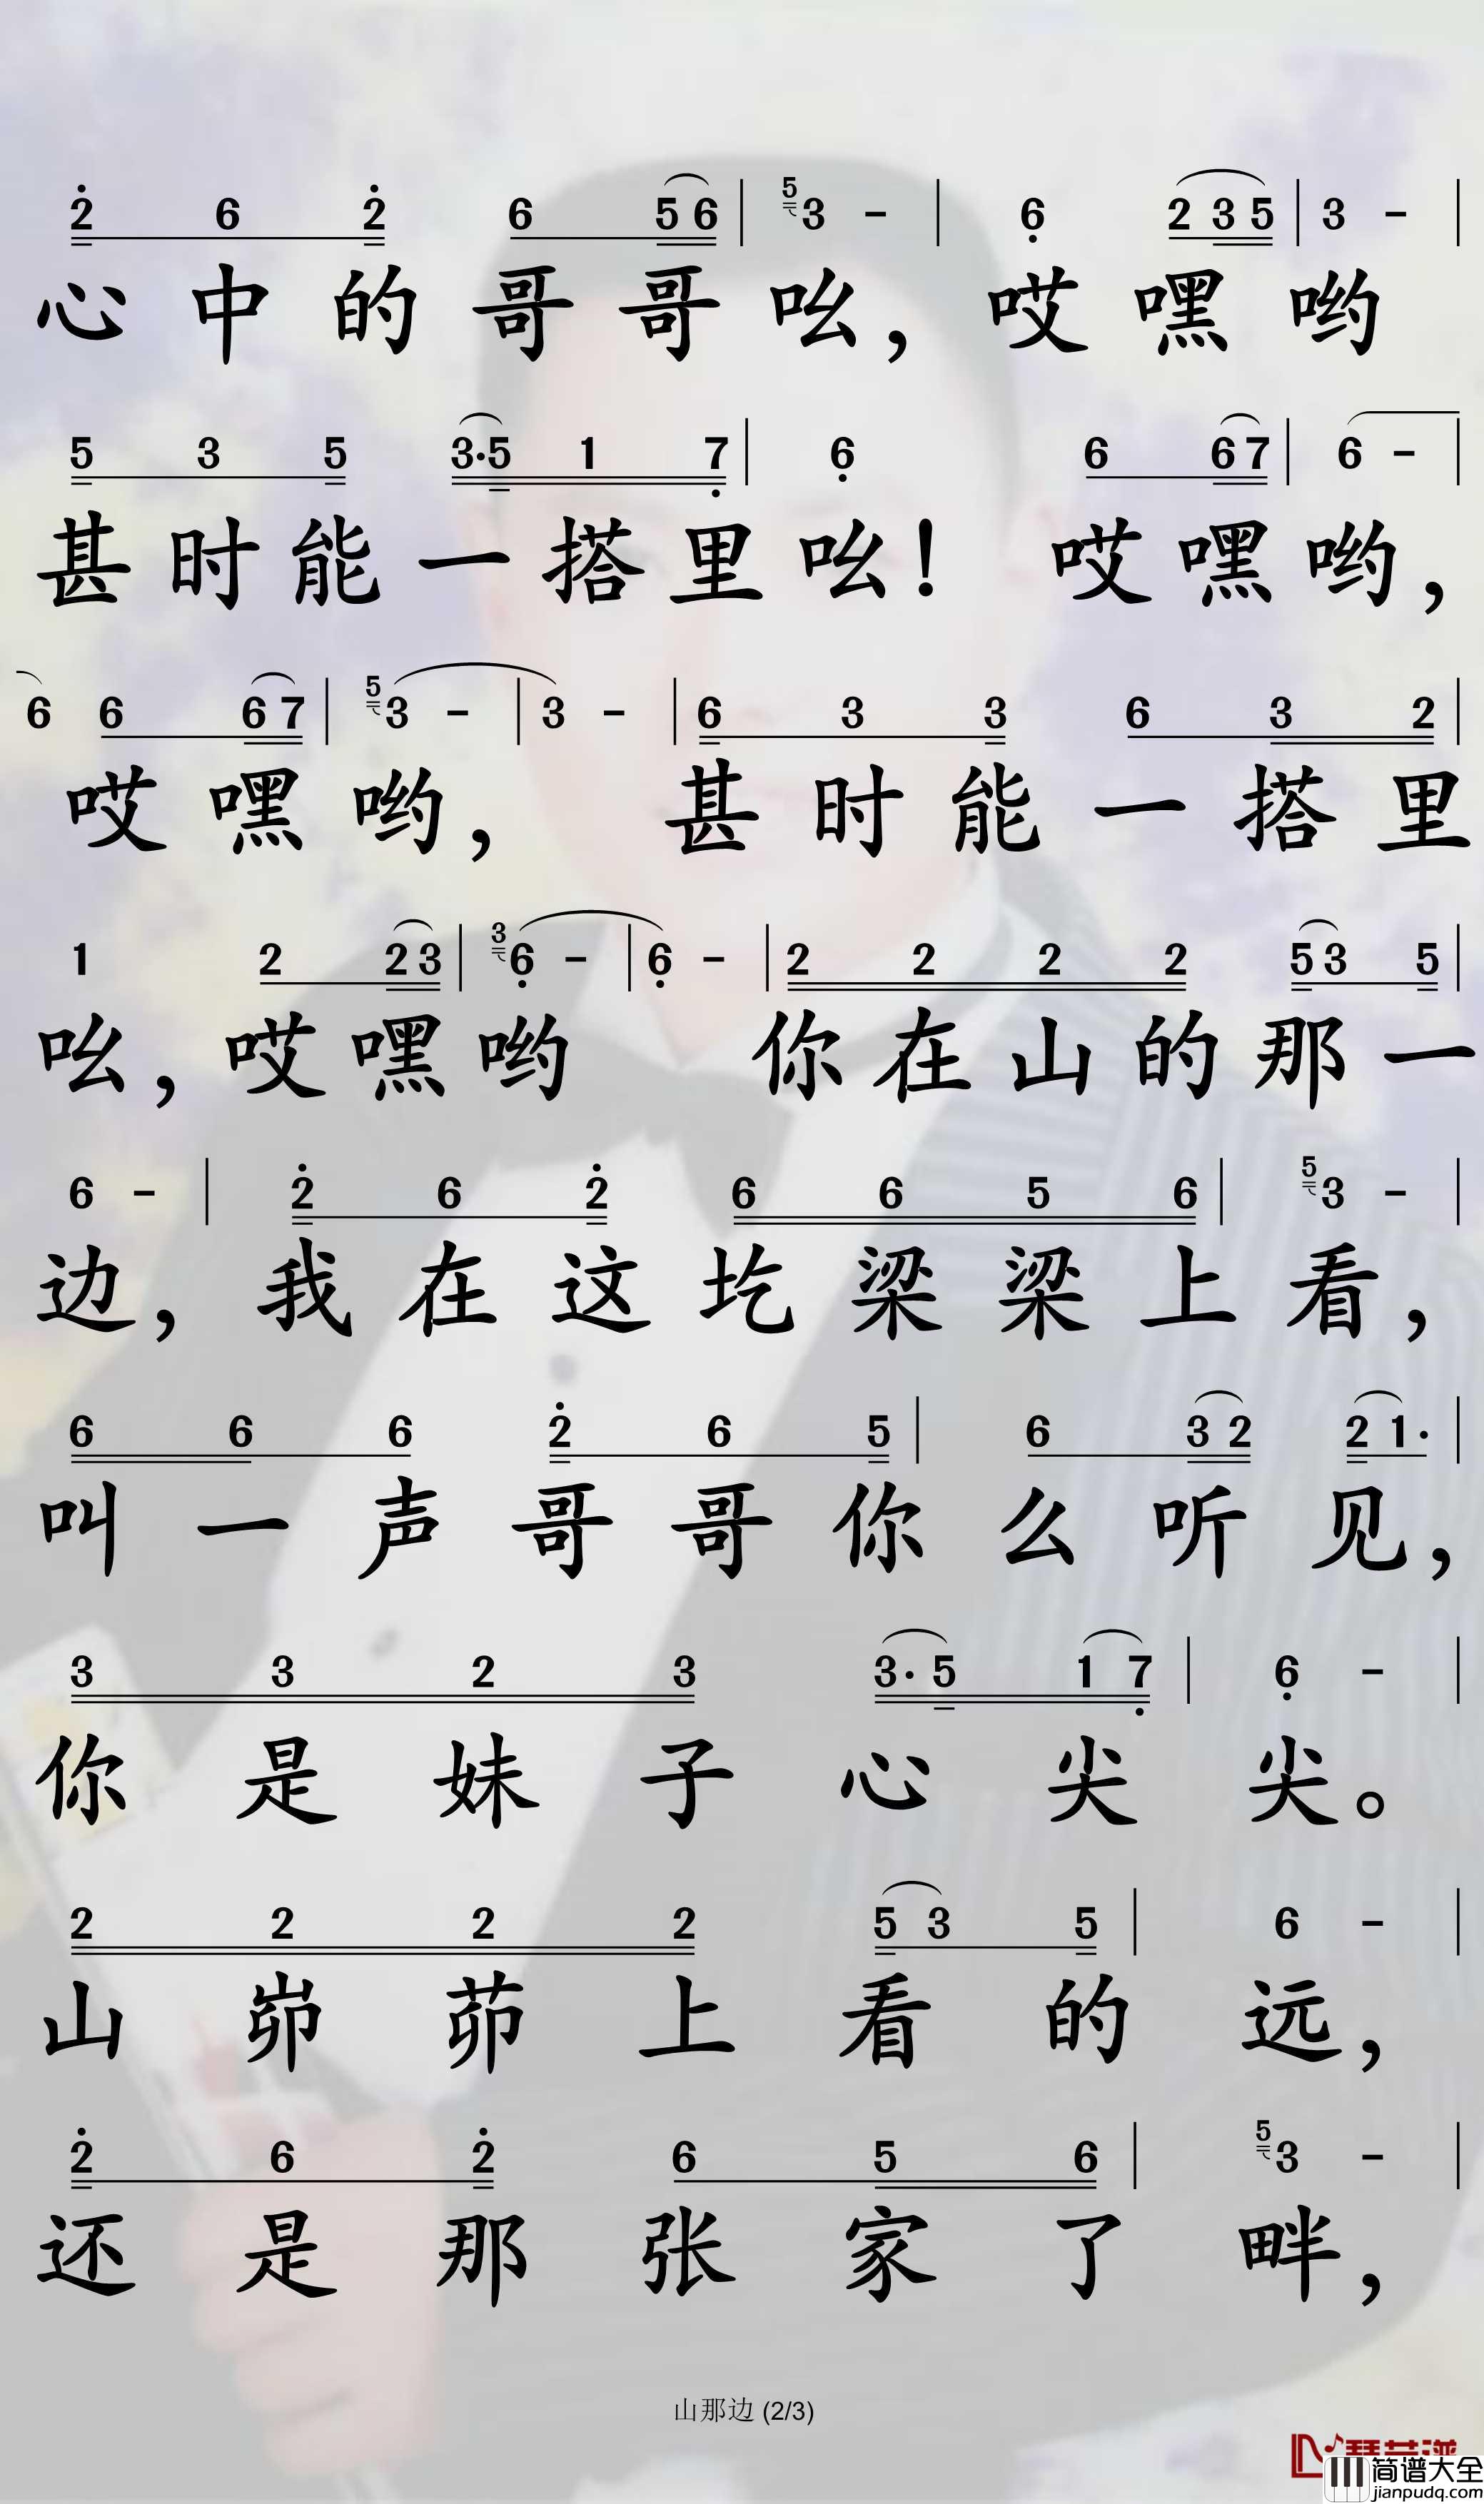 2̇ 6 2̇ 6 5 6 | 5 3 - | 6̣ 2 3 5 | 3 - |
心中的哥哥吆，哎嘿哟
5 3 5 3·5 1 7̣ | 6̣ 6 6 7 | 6 - |
甚时能一搭里吆！哎嘿哟，
6 6 6 7 | 5 3 - | 3 - | 6 3 3 6 3 2 |
哎嘿哟，甚时能一搭里
1 2 2 3 | 3 6̣ - | 6̣ - | 2 2 2 2 5 3 5 |
吆，哎嘿哟 你在山的那一
6 - | 2̇ 6 2̇ 6 6 5 6 | 5 3 - |
边，我在这圪梁梁上看，
6 6 6 2̇ 6 5 | 6 3 2 2 1· |
叫一声哥哥你么听见，
3 3 2 3 3·5 1 7̣ | 6̣ - |
你是妹子心尖尖。
2 2 2 2 5 3 5 | 6 - |
山峁茆上看的远，
2̇ 6 2̇ 6 5 6 | 5 3 - |
还是那张家了畔，
山那边 (2/3)
简谱大全
jianpudq.com